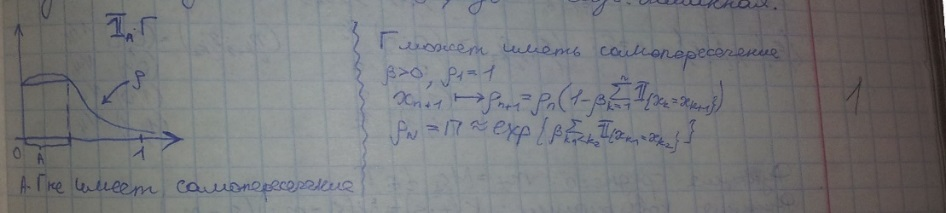 𝕀_A: Г
ρ
0 A 1
A: Г не имеет самопересечение
Г может иметь самопересечение
β>0, ρ₁=1
x_{n+1} ↦ ρ_{n+1} = ρ_n (1-β∑_{k=1}^{n} 𝕀_{x_k=x_{k+1}})
ρ_N = П ≈ exp{β∑_{k₁<k₂} 𝕀_{x_{k₁}=x_{k₂}}}
1